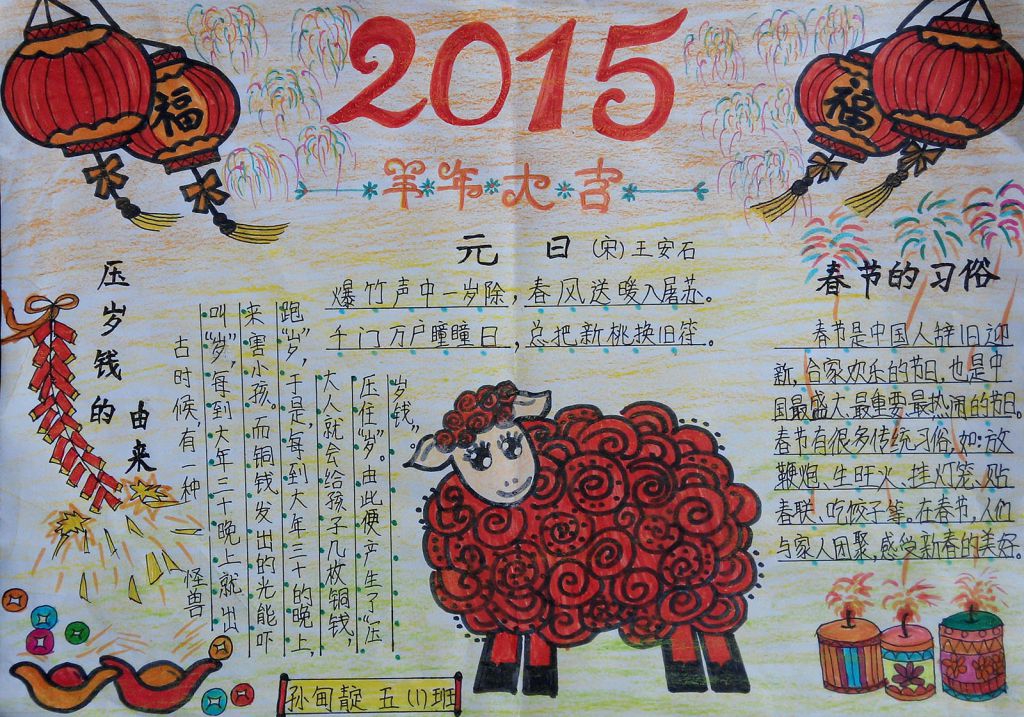 2015
福
福
羊年大吉
元 日 (宋)王安石
爆竹声中一岁除,春风送暖入屠苏。
千门万户瞳瞳日,总把新桃换旧符。
压岁钱的由来
古时候,有一种怪兽
叫“岁”,每到大年三十晚上就出
来害小孩。而铜钱发出的光能吓
跑“岁”,于是,每到大年三十的晚上,
大人就会给孩子几枚铜钱,
压住“岁”。由此便产生了“压
岁钱”。
春节的习俗
春节是中国人辞旧迎
新,合家欢乐的节日,也是中
国最盛大、最重要、最热闹的节日。
春节有很多传统习俗,如:放
鞭炮、生旺火、挂灯笼、贴
春联、吃饺子等。在春节,人们
与家人团聚,感受新春的美好。
孙甸靛 五(1)班